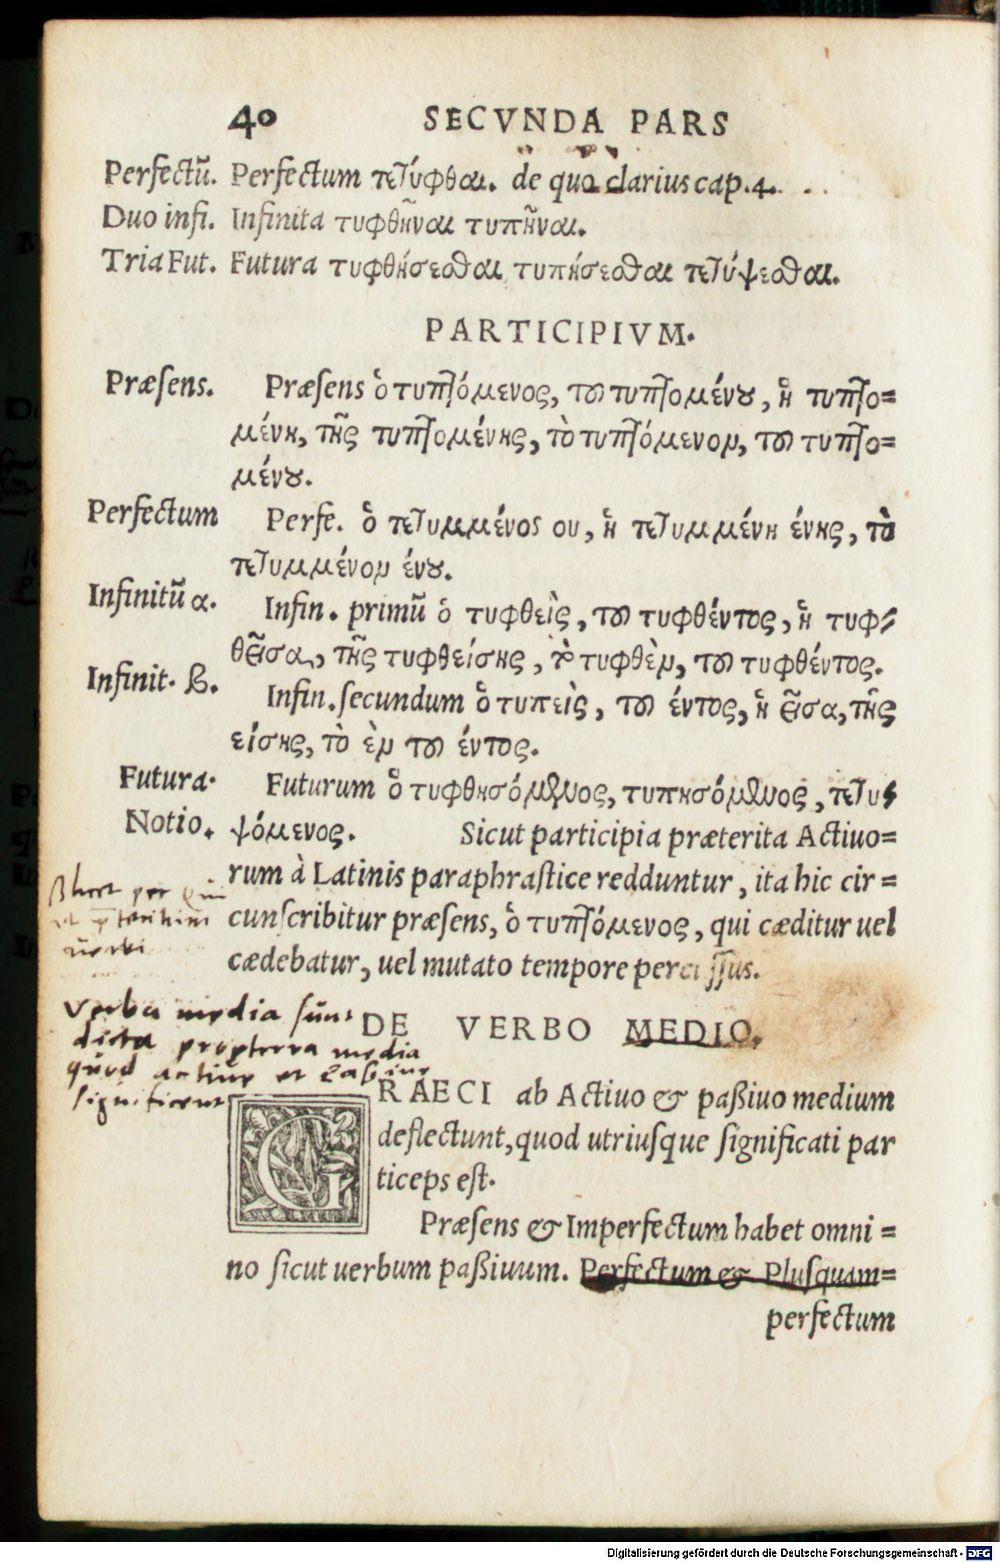 40 SECVNDA PARS
Perfectũ. Perfectum τετύφθαι. de quo clarius cap. 4.
Duo infi. Infinita τυφθῆναι τυπῆναι.
Tria Fut. Futura τυφθήσεσθαι τυπήσεσθαι τετύψεσθαι.
PARTICIPIVM.
Præsens. Præsens ὁ τυπτόμενος, τοῦ τυπτομένου, ἡ τυπτο=
μένη, τῆς τυπτομένης, τὸ τυπτόμενον, τοῦ τυπτο=
μένου.
Perfectum Perfe. ὁ τετυμμένος ου, ἡ τετυμμένη ένης, τὸ
τετυμμένον ένου.
Infinitũ α. Infin. primũ ὁ τυφθεὶς, τοῦ τυφθέντος, ἡ τυφ=
θεῖσα, τῆς τυφθείσης, τὸ τυφθὲν, τοῦ τυφθέντος.
Infinit. β. Infin. secundum ὁ τυπεὶς, τοῦ έντος, ἡ εῖσα, τῆς
είσης, τὸ ὲν τοῦ έντος.
Futura. Futurum ὁ τυφθησόμενος, τυπησόμενος, τετυ=
Notio. ψόμενος. Sicut participia præterita Actiuo=
rum à Latinis paraphrastice redduntur, ita hic cir=
cunscribitur præsens, ὁ τυπτόμενος, qui cæditur uel
cædebatur, uel mutato tempore percussus.
verba media sunt
dicta propterea media
quod actiue et passiue
significent
DE VERBO MEDIO.
GRAECI ab Actiuo & paßiuo medium
deflectunt, quod utriusque significati par
ticeps est.
Præsens & Imperfectum habet omni=
no sicut uerbum paßiuum. Perfectum & Plusquam=
perfectum
Digitalisierung gefördert durch die Deutsche Forschungsgemeinschaft - DFG